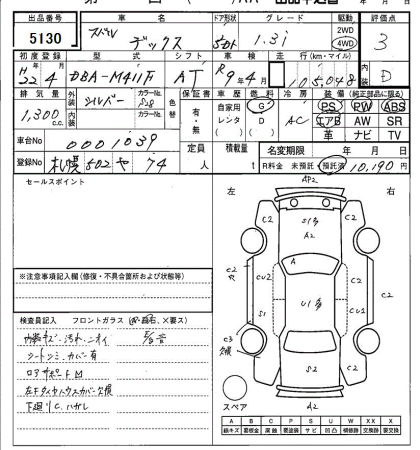 出品番号 車名 ドア形状 グレード 駆動 評価点
5130 スバル デックス 5Dr 1.3i 2WD 4WD 3
初度登録 型式 シフト 車検 走行(km・マイル) 内装
H22年4月 DBA-M411F AT R9年4月 105,048 D
排気量 外装 カラーNo. 色替 保証書 車歴 燃料 冷房 装備(純正部品に限る)
1,300c.c. シルバー S28 有・無 自家用 G AC PS PW ABS
内装 カラーNo. レンタ D エアB AW SR
革 ナビ TV
車台No 0001039 定員 人 積載量 t 名変期限 年 月 日
登録No 札幌 502 や 74 R料金 未預託・預託済 10,190円
セールスポイント
左 右
※注意事項記入欄(修復・不具合箇所および状態等)
検査員記入 フロントガラス
内装キズ・汚れ・ニオイ
シートシミ・カバー有
ロアサポートM
左Fタイヤハウスカバー欠損
下廻りC、ハガレ
AP2
C2 S1多 C2
A2
A
C2 CU2 U1多 CU2 C2
S1
C3 欠損
S2 C2
A2
スペア
A B C P S U W X XX
線キズ 要板金 腐食 要塗装 サビ 凹凸 補修跡 要交換 交換済